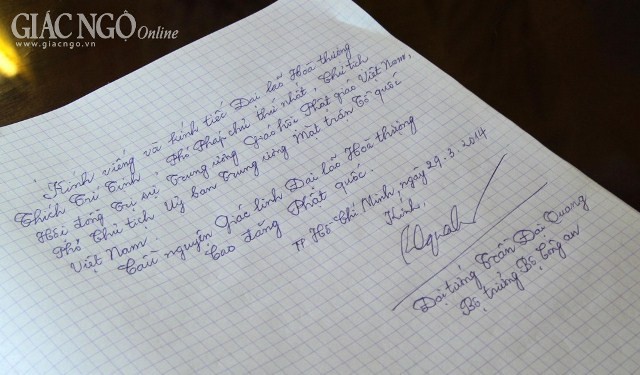 GIÁC NGỘ Online
www.giacngo.vn
Kính viếng và kính tiếc Đại lão Hoà thượng
Thích Trí Tịnh, Phó Pháp chủ thứ nhất, Chủ tịch
Hội đồng Trị sự Trung ương Giáo hội Phật giáo Việt Nam,
Phó Chủ tịch Uỷ ban Trung ương Mặt trận Tổ quốc
Việt Nam.
Cầu nguyện Giác linh Đại lão Hoà thượng
Cao đăng Phật quốc.
TP Hồ Chí Minh, ngày 29.3.2014
Kính,
Đại tướng Trần Đại Quang
Bộ trưởng Bộ Công an